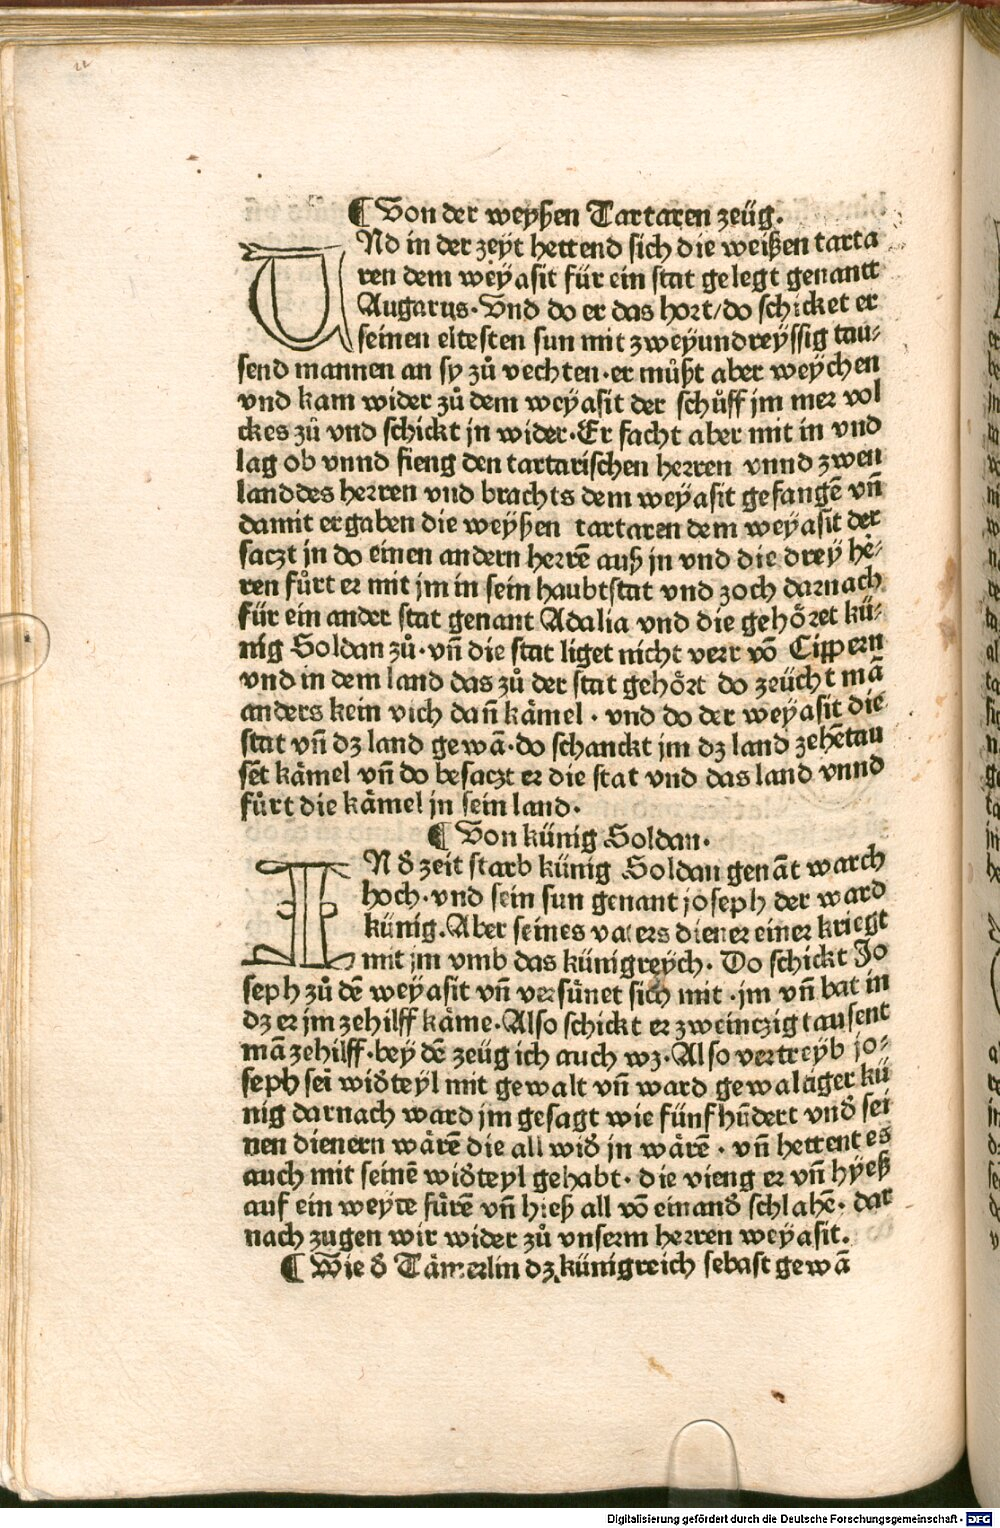 ¶ Von der weyßen Tartaren zeüg.
UNd in der zeÿt hettend sich die weißen tarta
ren dem weÿasit für ein stat gelegt genantt
Augarus. Vnd do er das hort/do schicket er
seinen eltesten sun mit zweyundreyssig tau⸗
send mannen an sy zů vechten.er můßt aber weÿchen
vnd kam wider zů dem weÿasit der schůff jm mer vol
ckes zů vnd schickt jn wider.Er facht aber mit in vnd
lag ob vnnd fieng den tartarischen herren vnnd zwen
landdes herren vnd brachts dem weÿasit gefangē vn̄
damit ergaben die weyßen tartaren dem weyasit der
saczt jn do einen andern herrē auß jn vnd die drey he⸗
ren fůrt er mit jm in sein haubtstat vnd zoch darnach
für ein ander stat genant Adalia vnd die gehöret kü⸗
nig Soldan zů.vn̄ die stat liget nicht verr vō Cippern
vnd in dem land das zů der stat gehört do zeücht mā
anders kein vich dan̄ kämel . vnd do der weyasit die
stat vn̄ dz land gewā.do schanckt jm dz land zehētau
sēt kämel vn̄ do besaczt er die stat vnd das land vnnd
fůrt die kämel jn sein land.
¶ Von künig Soldan.
INď zeit starb künig Soldan genāt warch
hoch.vnd sein sun genant joseph der ward
künig.Aber seines vaters diener einer kriegt
mit jm vmb das künigreÿch. Do schickt Jo
seph zů dē weÿasit vn̄ versünet sich mit .jm vn̄ bat in
dz er jm zehilff käme.Also schickt er zweinczig tausent
mā zehilff.bey dē zeüg ich auch wz.Also vertreyb jo⸗
seph sei wiďteyl mit gewalt vn̄ ward gewaltiger kü
nig darnach ward jm gesagt wie fünfhūdert vnď sei
nen dienern wärē die all wiď jn wärē . vn̄ hettent es
auch mit seinē wiďteyl gehabt. die vieng er vn̄ hÿeß
auf ein weyte fürē vn̄ hieß all vō einanď schlahē. dar
nach zugen wir wider zů vnserm herren weÿasit.
¶ Wie ď Tämerlin dz künigreich sebast gewā
Digitalisierung gefördert durch die Deutsche Forschungsgemeinschaft - DFG